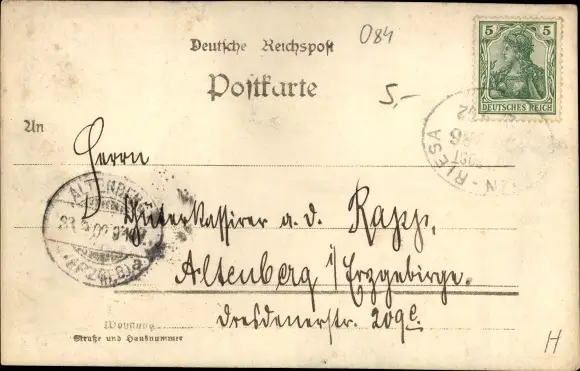 Deutsche Reichspost
084
Postkarte
5,-
5 5
DEUTSCHES REICH
An
Herrn
ALTENBERG
(ERZGEB)
RIESA
Güterkassirer a. d. Rapp,
Altenberg i/Erzgebirge.
Dresdenerstr. 209c.
Wohnung
Straße und Hausnummer
H